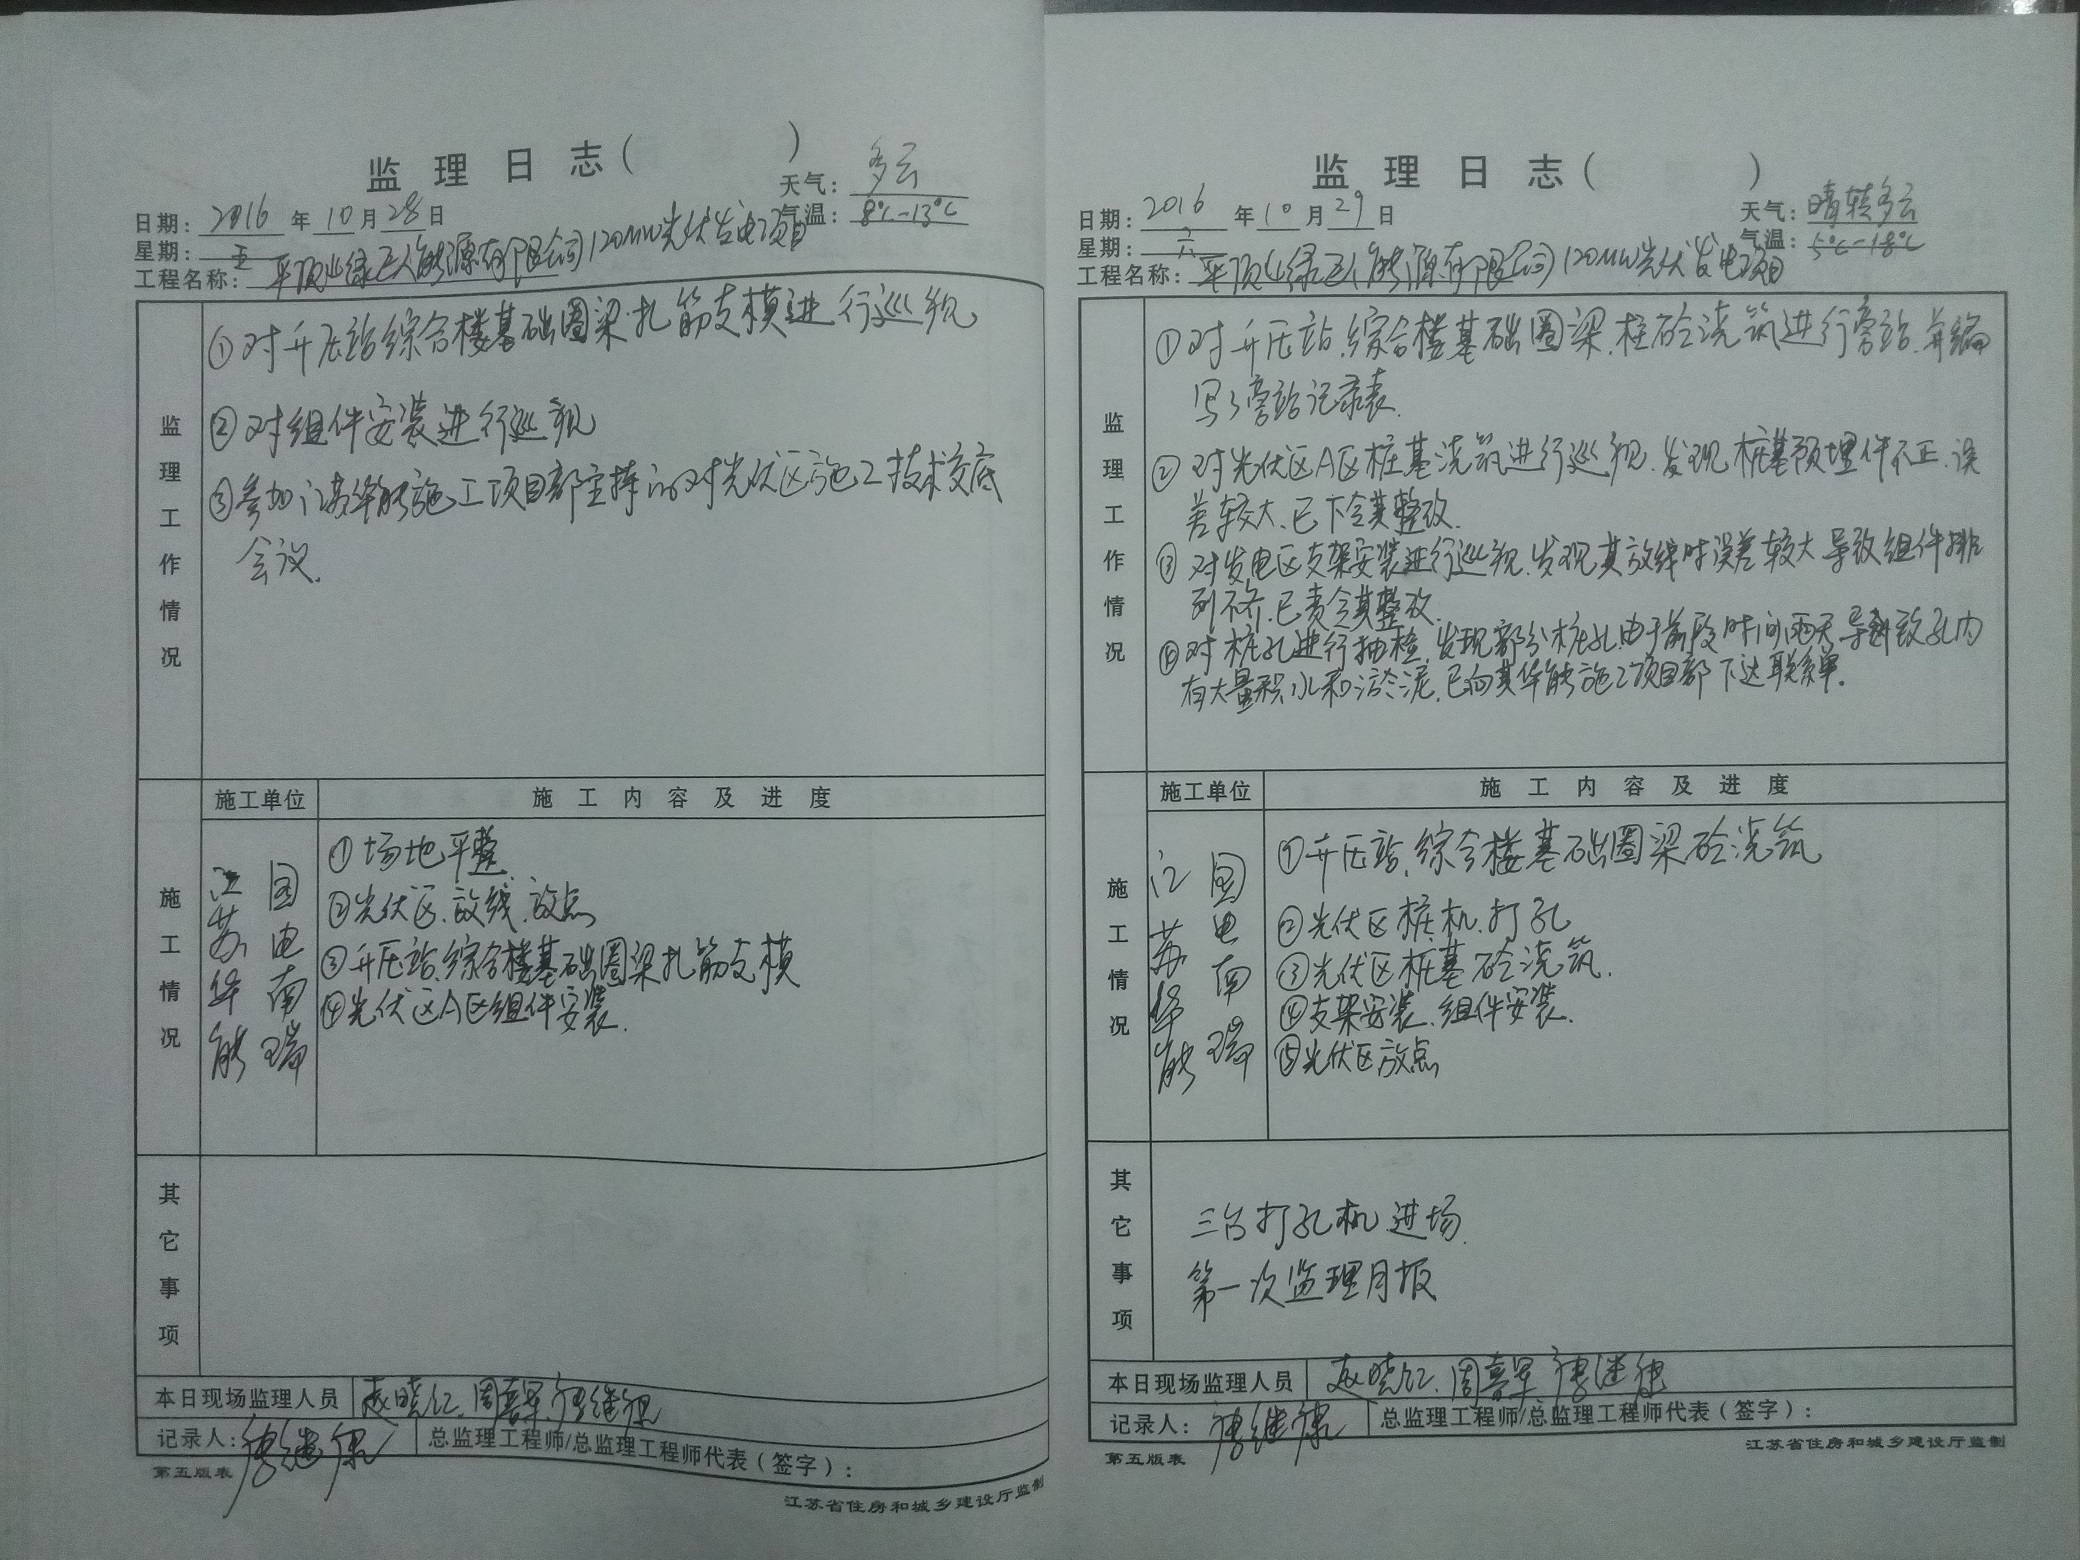 监理日志（ ）
天气：多云
日期：2016年10月28日
气温：8℃-13℃
星期：五
工程名称：平顶山绿巨人能源有限公司120MW光伏发电项目
监理工作情况
①对升压站综合楼基础圈梁扎筋支模进行巡视
②对组件安装进行巡视
③参加江苏华能施工项目部主持的对光伏区施工技术交底
会议.
施工情况
施工单位
施工内容及进度
江苏华能
国电南瑞
①场地平整.
②光伏区.放线.放点
③升压站.综合楼基础圈梁扎筋支模
④光伏区A区组件安装.
其它事项
本日现场监理人员
赵晓仁.周喜军.唐继
记录人：唐继
总监理工程师/总监理工程师代表（签字）：
第五版表
江苏省住房和城乡建设厅监制
监理日志（ ）
天气：晴转多云
日期：2016年10月29日
气温：5℃-18℃
星期：六
工程名称：平顶山绿巨人能源有限公司120MW光伏发电项目
监理工作情况
①对升压站.综合楼基础圈梁.柱砼浇筑进行旁站.并编
写了旁站记录表.
②对光伏区A区桩基浇筑进行巡视.发现桩基预埋件不正.误
差较大.已下令其整改.
③对发电区支架安装进行巡视.发现其放线时误差较大导致组件排
列不齐.已责令其整改.
④对桩孔进行抽检.发现部分桩孔由于前段时间雨天导致孔内
有大量积水和淤泥.已向其华能施工项目部下达联系单.
施工情况
施工单位
施工内容及进度
江苏华能
国电南瑞
①升压站.综合楼基础圈梁砼浇筑
②光伏区桩机.打孔
③光伏区桩基砼浇筑.
④支架安装.组件安装.
⑤光伏区放点
其它事项
三台打孔机进场.
第一次监理月报
本日现场监理人员
赵晓仁.周喜军.唐继
记录人：唐继
总监理工程师/总监理工程师代表（签字）：
第五版表
江苏省住房和城乡建设厅监制